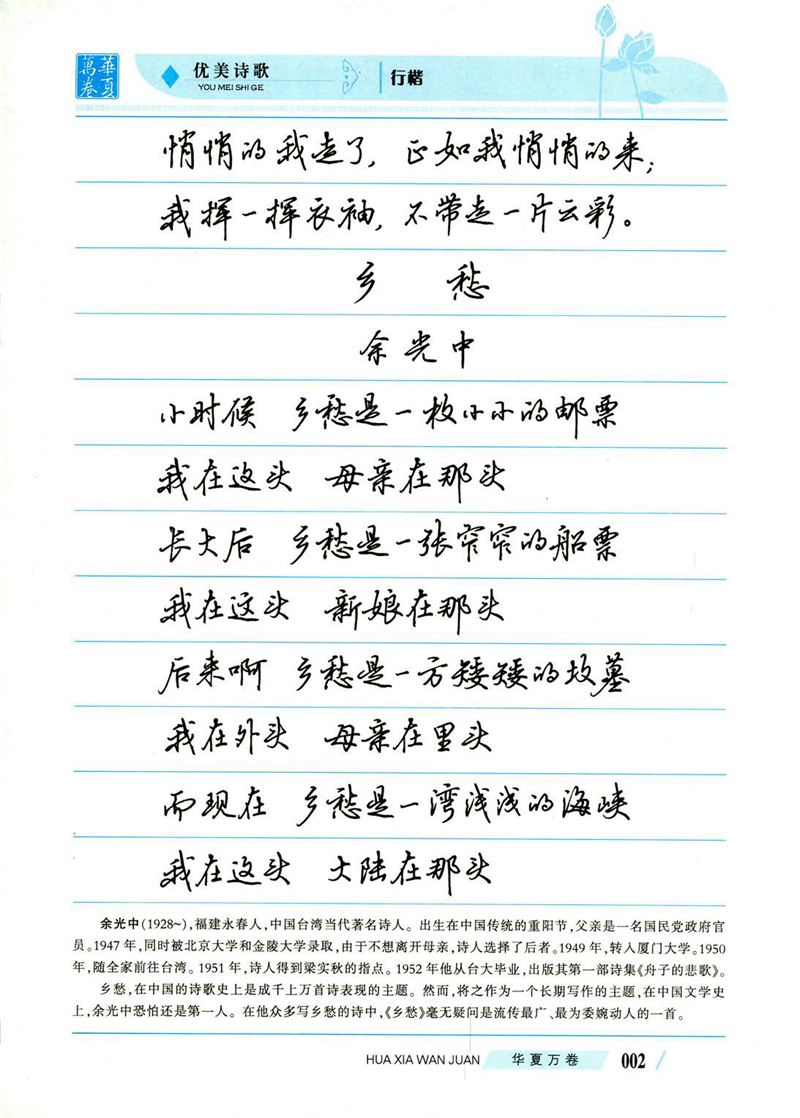 華夏
萬卷
优美诗歌
YOU MEI SHI GE
行楷
悄悄的我走了，正如我悄悄的来；
我挥一挥衣袖，不带走一片云彩。
乡 愁
余光中
小时候 乡愁是一枚小小的邮票
我在这头 母亲在那头
长大后 乡愁是一张窄窄的船票
我在这头 新娘在那头
后来啊 乡愁是一方矮矮的坟墓
我在外头 母亲在里头
而现在 乡愁是一湾浅浅的海峡
我在这头 大陆在那头
余光中(1928~),福建永春人,中国台湾当代著名诗人。出生在中国传统的重阳节,父亲是一名国民党政府官
员。1947年,同时被北京大学和金陵大学录取,由于不想离开母亲,诗人选择了后者。1949年,转入厦门大学。1950
年,随全家前往台湾。1951年,诗人得到梁实秋的指点。1952年他从台大毕业,出版其第一部诗集《舟子的悲歌》。
乡愁,在中国的诗歌史上是成千上万首诗表现的主题。然而,将之作为一个长期写作的主题,在中国文学史
上,余光中恐怕还是第一人。在他众多写乡愁的诗中,《乡愁》毫无疑问是流传最广、最为委婉动人的一首。
HUA XIA WAN JUAN 华夏万卷 002